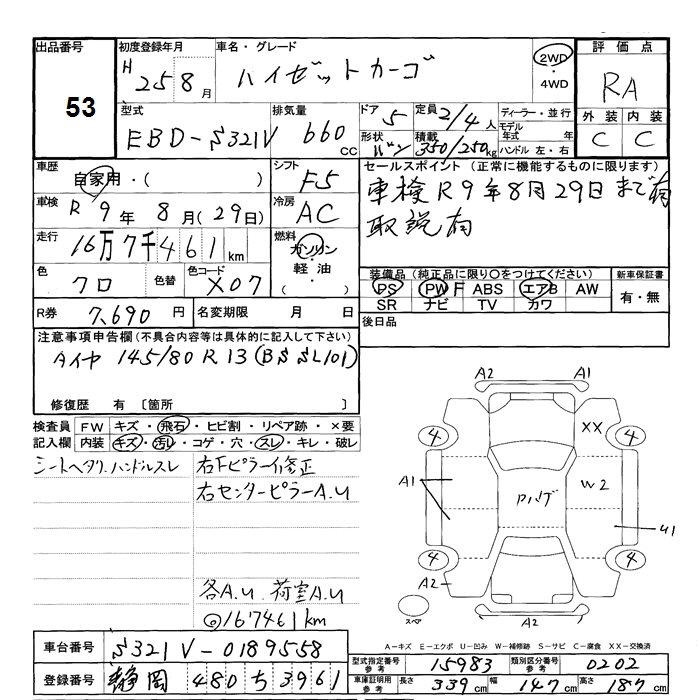 出品番号 初度登録年月 車名・グレード 評価点
53 H 25 8月 ハイゼットカーゴ 2WD・4WD RA
外装 内装
C C
型式 排気量 ドア 定員 ディーラー・並行
EBD-S321V 660 CC 5 2/4人 モデル年式 年
形状 積載 ハンドル 左・右
バン 350/250kg
車歴 シフト セールスポイント (正常に機能するものに限ります)
自家用・( ) F5 車検R9年8月29日まで有
車検 冷房 取説有
R 9年 8月(29日) AC
走行 燃料
16万7千461km ガソリン・軽油・( )
色 色替 色コード 装備品 (純正品に限り○をつけてください) 新車保証書
クロ X07 PS PW F ABS エアB AW 有・無
SR ナビ TV カワ
R券 7,690円 名変期限 月 日 後日品
注意事項申告欄(不具合内容等は具体的に記入して下さい)
タイヤ 145/80 R13 (BS SL101)
修復歴 有 〔箇所 〕
検査員 FW キズ・飛石・ヒビ割・リペア跡・×要
記入欄 内装 キズ・汚れ・コゲ・穴・スレ・キレ・破レ
シートヘタリ.ハンドルスレ 右Fピラー修正
右センターピラーA.U
各A.U 荷室A.U
◎167461km
A2 A1
4 XX 4
A1 アハゲ W2
U1
4 4
A2
スペ A2
A-キズ E-エクボ U-凹み W-補修跡 S-サビ C-腐食 XX-交換済
車台番号 S321V-0189558
型式指定番号 参考 15983 類別区分番号 参考 0202
登録番号 静岡 480 ち 3961
車庫証明用 参考 長さ 339cm 幅 147cm 高さ 187cm